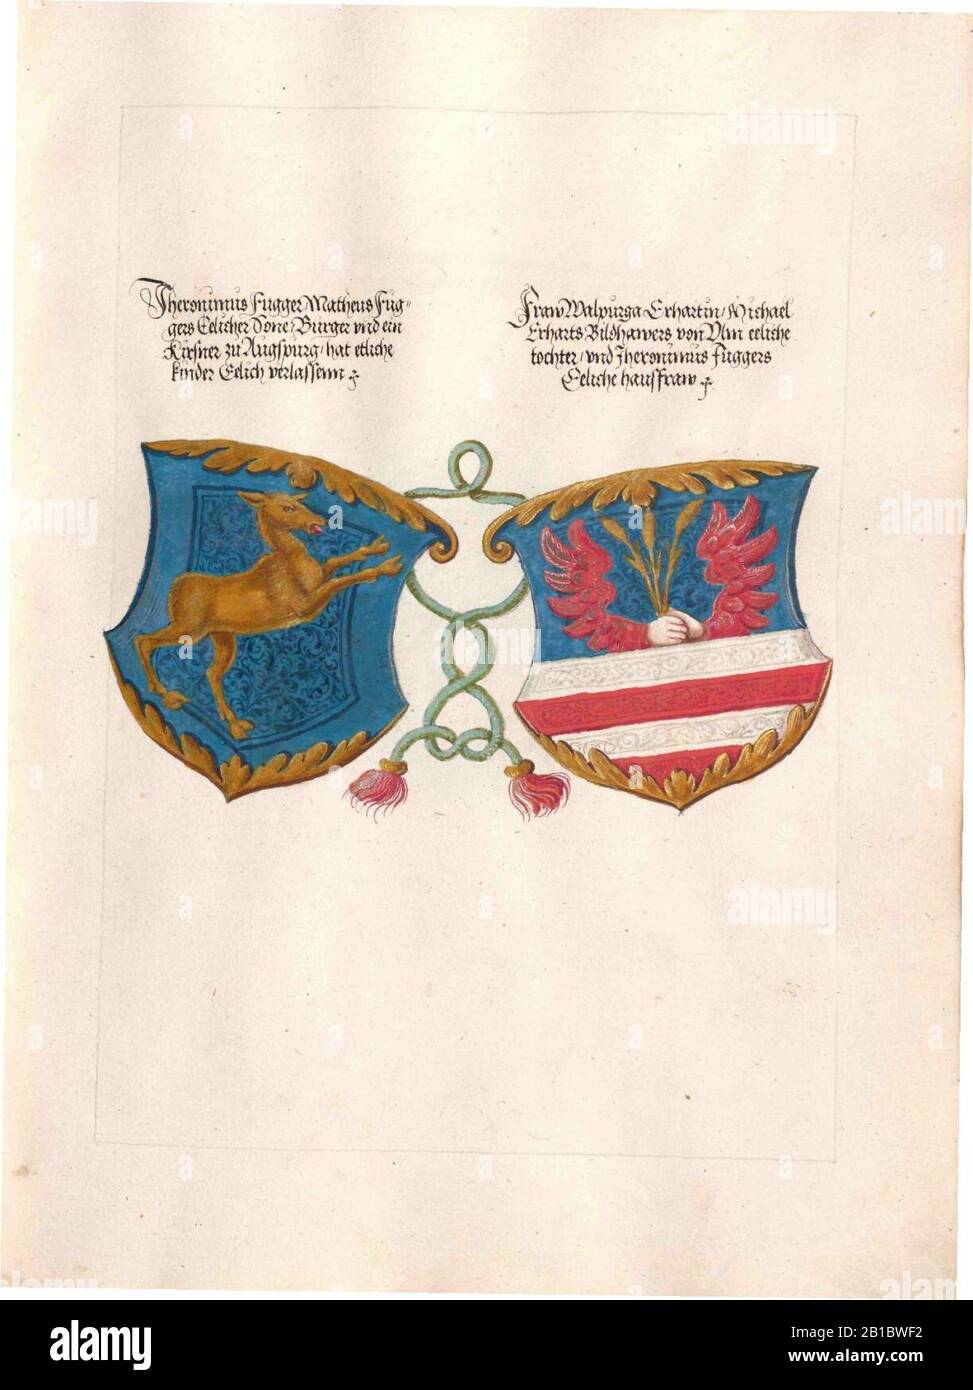 Jheronimus Fugger Matheus Fug=
gers Eelicher Sone / Burger vnd ein
Kirsner zu Augspurg / hat etliche
kinder Eelich verlassenn
Fraw Walpurga Erhartin / Michael
Erharts Bildhawers von Ulm eeliche
tochter / vnd Jheronimus Fuggers
Eeliche hausfraw
alamy
Image ID: 2B1BWF2
www.alamy.com